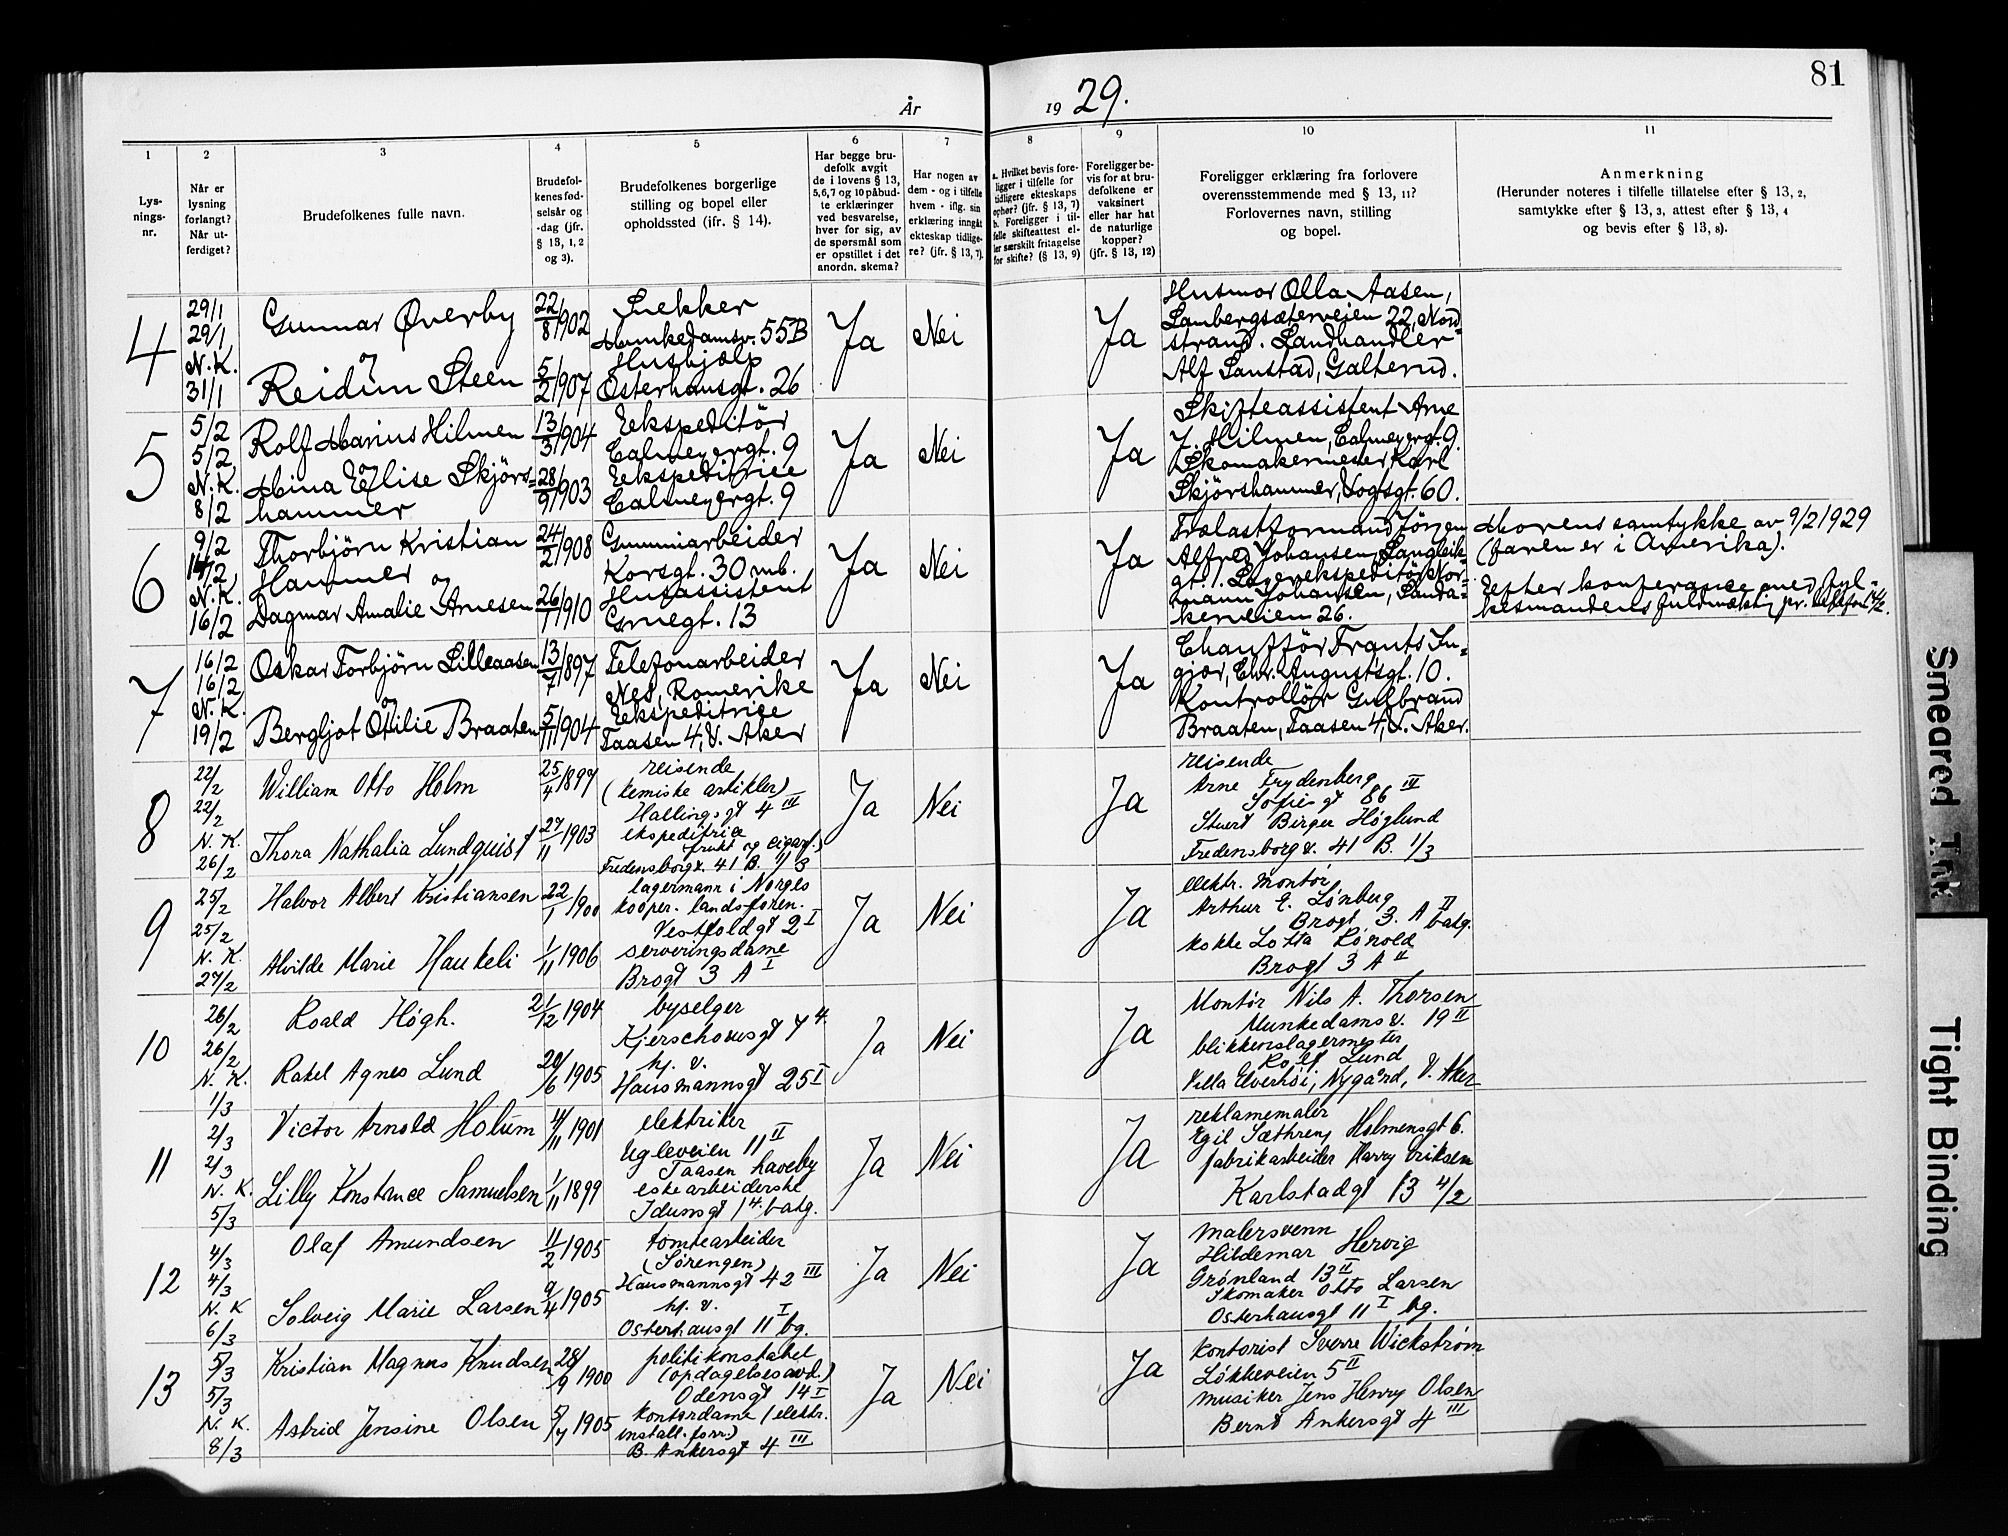 81
År 19 29.
1
Lys-
nings-
nr.
2
Når er
lysning
forlangt?
Når ut-
ferdiget?
3
Brudefolkenes fulle navn.
4
Brudefol-
kenes fød-
selsår og
-dag (jfr.
§ 13, 1, 2
og 3).
5
Brudefolkenes borgerlige
stilling og bopel eller
opholdssted (ifr. § 14).
6
Har begge bru-
defolk avgit
de i lovens § 13,
5,6,7 og 10 påbud-
te erklæringer
ved besvarelse,
hver for sig, av
de spørsmål som
er opstillet i det
anordn. skema?
7
Har nogen av
dem - og i tilfelle
hvem - iflg. sin
erklæring inngåt
ekteskap tidlige-
re? (jfr. § 13, 7).
8
a. Hvilket bevis fore-
ligger i tilfelle for
tidligere ekteskaps
ophør? (jfr. § 13, 7)
b. Foreligger i til-
felle skifteattest el-
ler særskilt fritagelse
for skifte? (§ 13, 9)
9
Foreligger be-
vis for at bru-
defolkene er
vaksinert
eller har hat
de naturlige
kopper?
(jfr. § 13, 12)
10
Foreligger erklæring fra forlovere
overensstemmende med § 13, 11?
Forlovernes navn, stilling
og bopel.
11
Anmerkning
(Herunder noteres i tilfelle tillatelse efter § 13, 2,
samtykke efter § 13, 3, attest efter § 13, 4
og bevis efter § 13, 8).
4
29/1
29/1
N. K.
31/1
Gunnar Øverby
og
Reidun Steen
22/8 1902
5/2 1907
Snekker
Munkedamsv. 55B
Hushjælp
Osterhausgt. 26
Ja
Nei
Ja
Husmor Olla Aasen,
Lambergsæterveien 22, Nord-
strand. Landhandler
Alf Sanstad, Galterud.
5
5/2
5/2
N. K.
8/2
Rolf Marius Hilmen
og
Mina Elise Skjørs-
hammer
13/3 1904
28/9 1903
Ekspeditör
Calmeyergt. 9
Ekspeditrice
Calmeyergt. 9
Ja
Nei
Ja
Skifteassistent Arne
J. Hilmen, Calmeyergt. 9.
Skomakermester Karl
Skjörshammer, Vogtsgt. 60.
6
9/2
14/2
N. K.
16/2
Thorbjörn Kristian
Hammer og
Dagmar Amalie Arnesen
24/2 1908
26/1 1910
Gummiarbeider
Korsgt. 30 mb.
Husassistent
Gruegt. 13
Ja
Nei
Ja
Trælastformand Jörgen
Alfred Johansen, Langleik-
gt. 1. Lagerekspeditör Nor-
mann Johansen, Sanda-
kerveien 26.
Morens samtykke av 9/2 1929
(faren er i Amerika).
Efter konferance med fyl-
kesmandens fuldmektig pr. telefon 14/2.
7
16/2
16/2
N. K.
19/2
Oskar Torbjörn Lilleaasen
og
Bergljot Otilie Braaten
13/7 1897
5/11 1904
Telefonarbeider
Nes, Romerike
Ekspeditrice
Taasen 4, V. Aker
Ja
Nei
Ja
Chaufför Frants In-
gjör, Chr. Augustsgt. 10.
Kontrollör Gulbrand
Braaten, Taasen 4, V. Aker.
8
22/2
22/2
N. K.
26/2
William Otto Holm
Thora Nathalia Lundquist
25/4 1897
27/11 1903
reisende
(kemiske artikler)
Hallingsgt 4 III
ekspeditrice
frukt og cigarf.)
Fredensborgv. 41 B. 1/3
Ja
Nei
Ja
reisende
Arne Frydenberg
Sofiesgt 86 III
Stuert Birger Höglund
Fredensborgv. 41 B. 1/3
9
25/2
25/2
N. K.
27/2
Halvor Albert Kristiansen
Alvilde Marie Haukeli
22/1 1900
1/11 1906
lagermann i Norges
kooper. landsforen.
Vestfoldgt 2 I
serveringsdame
Brogt 3 A I
Ja
Nei
Ja
elektr. montör
Arthur E. Lönberg
Brogt 3. A II bakg.
kokke Lotta Rönold
Brogt 3 A II
10
26/2
26/2
N. K.
1/3
Roald Högh.
Rakel Agnes Lund
21/12 1904
20/6 1905
byselger
Kjerschowsgt 7 4.
hj. v.
Hausmannsgt 25 I
Ja
Nei
Ja
Montör Nils A. Thorsen
Munkedamsv. 19 II
blikkenslagermester
Rolf Lund
Villa Elverhöi, Nygård, V. Aker
11
2/3
2/3
N. K.
5/3
Victor Arnold Holum
Lilly Konstance Samuelsen
4/11 1901
1/11 1899
elektriker
Ugleveien 11 II
Taasen haveby
eskearbeiderske
Idunsgt 1 4. bakg.
Ja
Nei
Ja
reklamemaler
Egil Sæthreng Holmensgt 6.
fabrikarbeider Harry Eriksen
Karlstadgt 13 4/2
12
4/3
4/3
N. K
6/3
Olaf Amundsen
Solveig Marie Larsen
11/2 1905
9/4 1905
tomtearbeider
(Sörengen)
Hausmannsgt 42 III
hj. v.
Osterhausgt 11 I bg.
Ja
Nei
Ja
malersvenn
Hildemar Hervig
Grönland 13 II
Skomaker Otto Larsen
Osterhausgt 11 I bg.
13
5/3
5/3
N. K.
8/3
Kristian Magnus Knudsen
Astrid Jensine Olsen
28/9 1900
5/7 1905
politikonstabel
(opdagelsesavd.)
Odensgt 14 I
kontordame (elektr.
install. forr.)
B. Ankersgt 4 III
Ja
Nei
Ja
kontorist Sverre Wickström
Lökkeveien 5 II
musiker Jens Henry Olsen
Bernt Ankersgt 4 III
Smeared Ink
Tight Binding